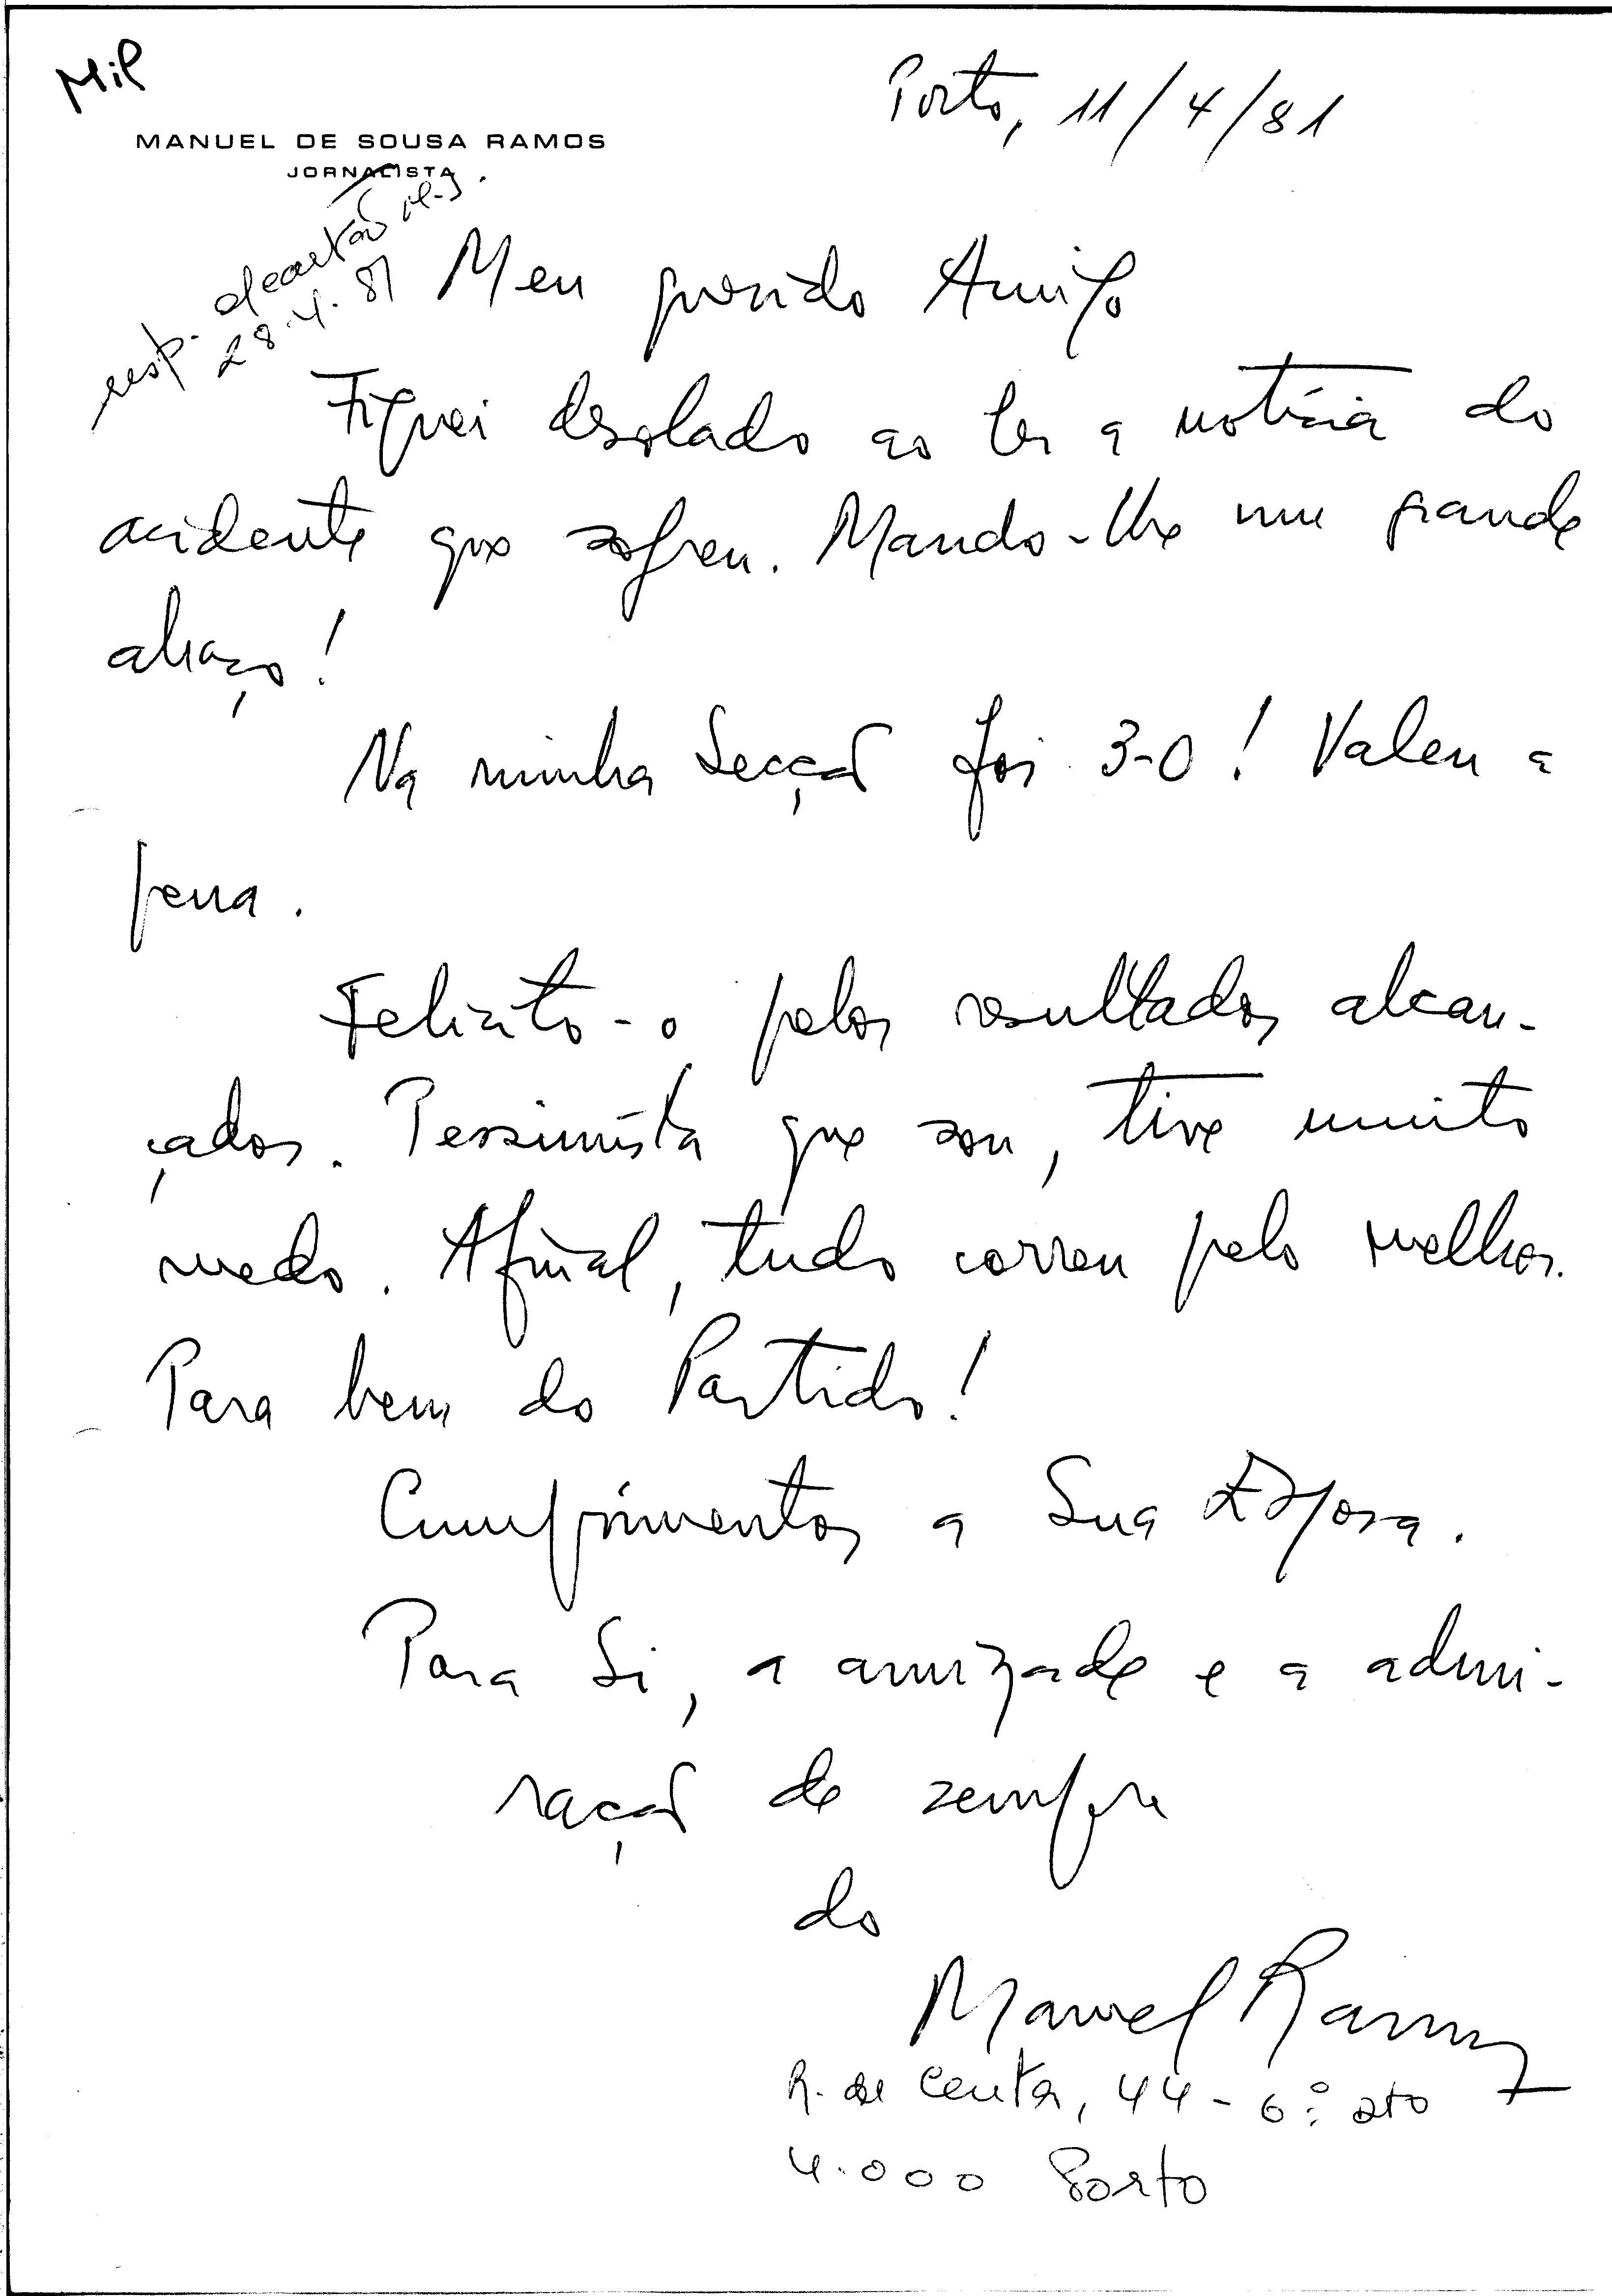 Mil
Porto, 11/4/81
MANUEL DE SOUSA RAMOS
JORNALISTA
resp. cartão
28.4.81
Meu querido Amigo
Fiquei desolado ao ler a notícia do
acidente que sofreu. Mando-lhe um grande
abraço!
Na minha Secção foi 3-0! Valeu a
pena.
Felicito-o pelos resultados alcan-
çados. Pessimista que sou, tive muito
medo. Afinal, tudo correu pelo melhor.
Para bem do Partido!
Cumprimentos a Sua Esposa.
Para Si, a amizade e a admi-
ração de sempre
do
Manuel Ramos
R. de Ceuta, 44 - 6.º
4.000 Porto